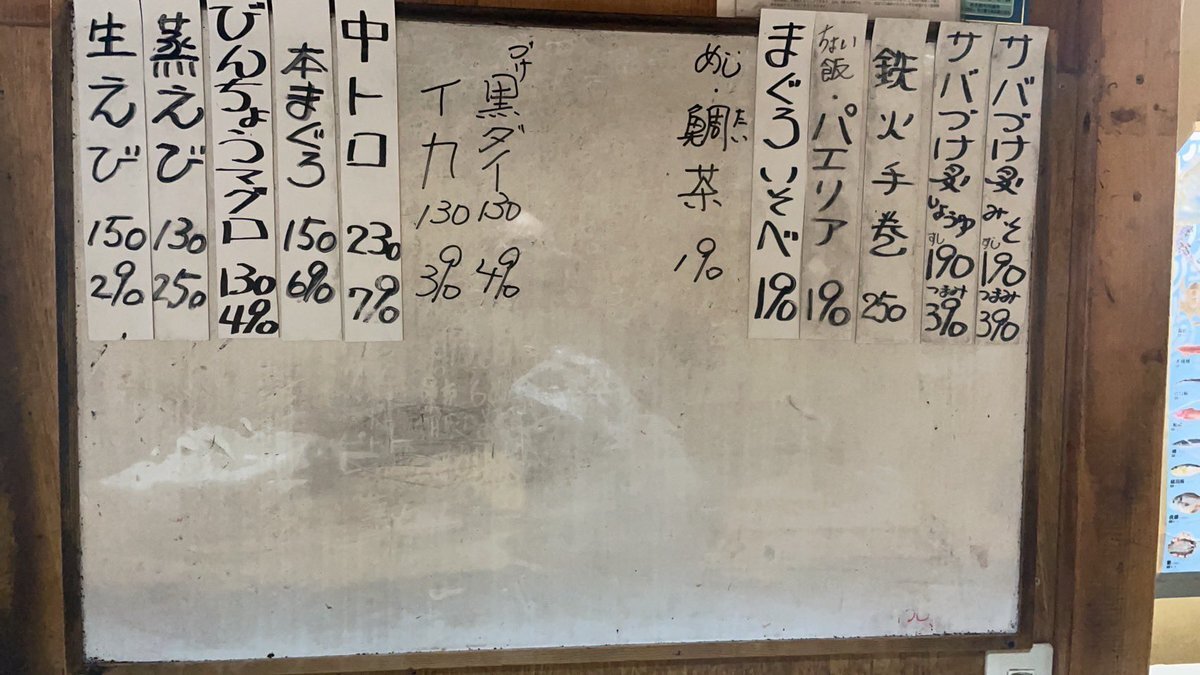 サバづけ炙みそ すし 190 つまみ 390
サバづけ炙しょうゆ すし 190 つまみ 390
鉄火手巻 250
飯・パエリア 190
まぐろいそべ 190
めし・鯛茶 たい 190
づけ黒ダイ 130 490
イカ 130 390
中トロ 230 790
本まぐろ 150 690
びんちょうマグロ 130 490
蒸えび 130 250
生えび 150 290